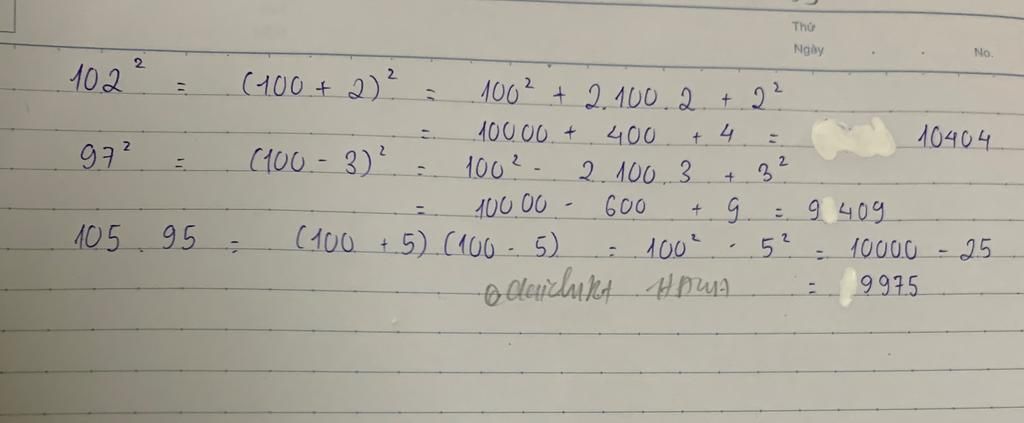 Thứ
Ngày . . No.
102² = (100 + 2)² = 100² + 2.100.2 + 2²
= 10000 + 400 + 4 = 10404
97² = (100 - 3)² = 100² - 2.100.3 + 3²
= 10000 - 600 + 9 = 9409
105.95 = (100 + 5)(100 - 5) = 100² - 5² = 10000 - 25
= 9975